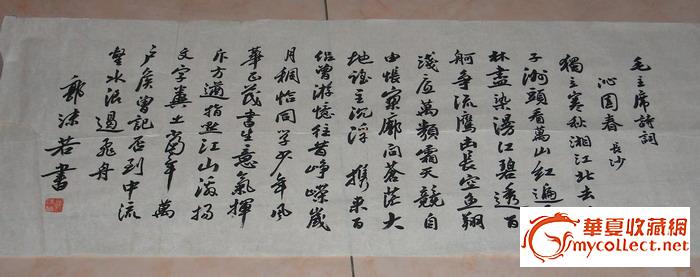 毛主席詩詞
沁园春 長沙
獨立寒秋湘江北去
子洲頭看萬山红遍
林盡染漫江碧透百
舸争流鹰击長空鱼翔
淺底萬類霜天競自
由悵寥廓问蒼茫大
地誰主沉浮 携来百
侣曾游憶往昔崢嶸歲
月稠恰同学少年風
華正茂書生意氣揮
斥方遒指点江山激揚
文字粪土當年萬
户侯曾記否到中流
擊水浪遏飛舟
郭沫若書
華夏收藏網
mycollect.net